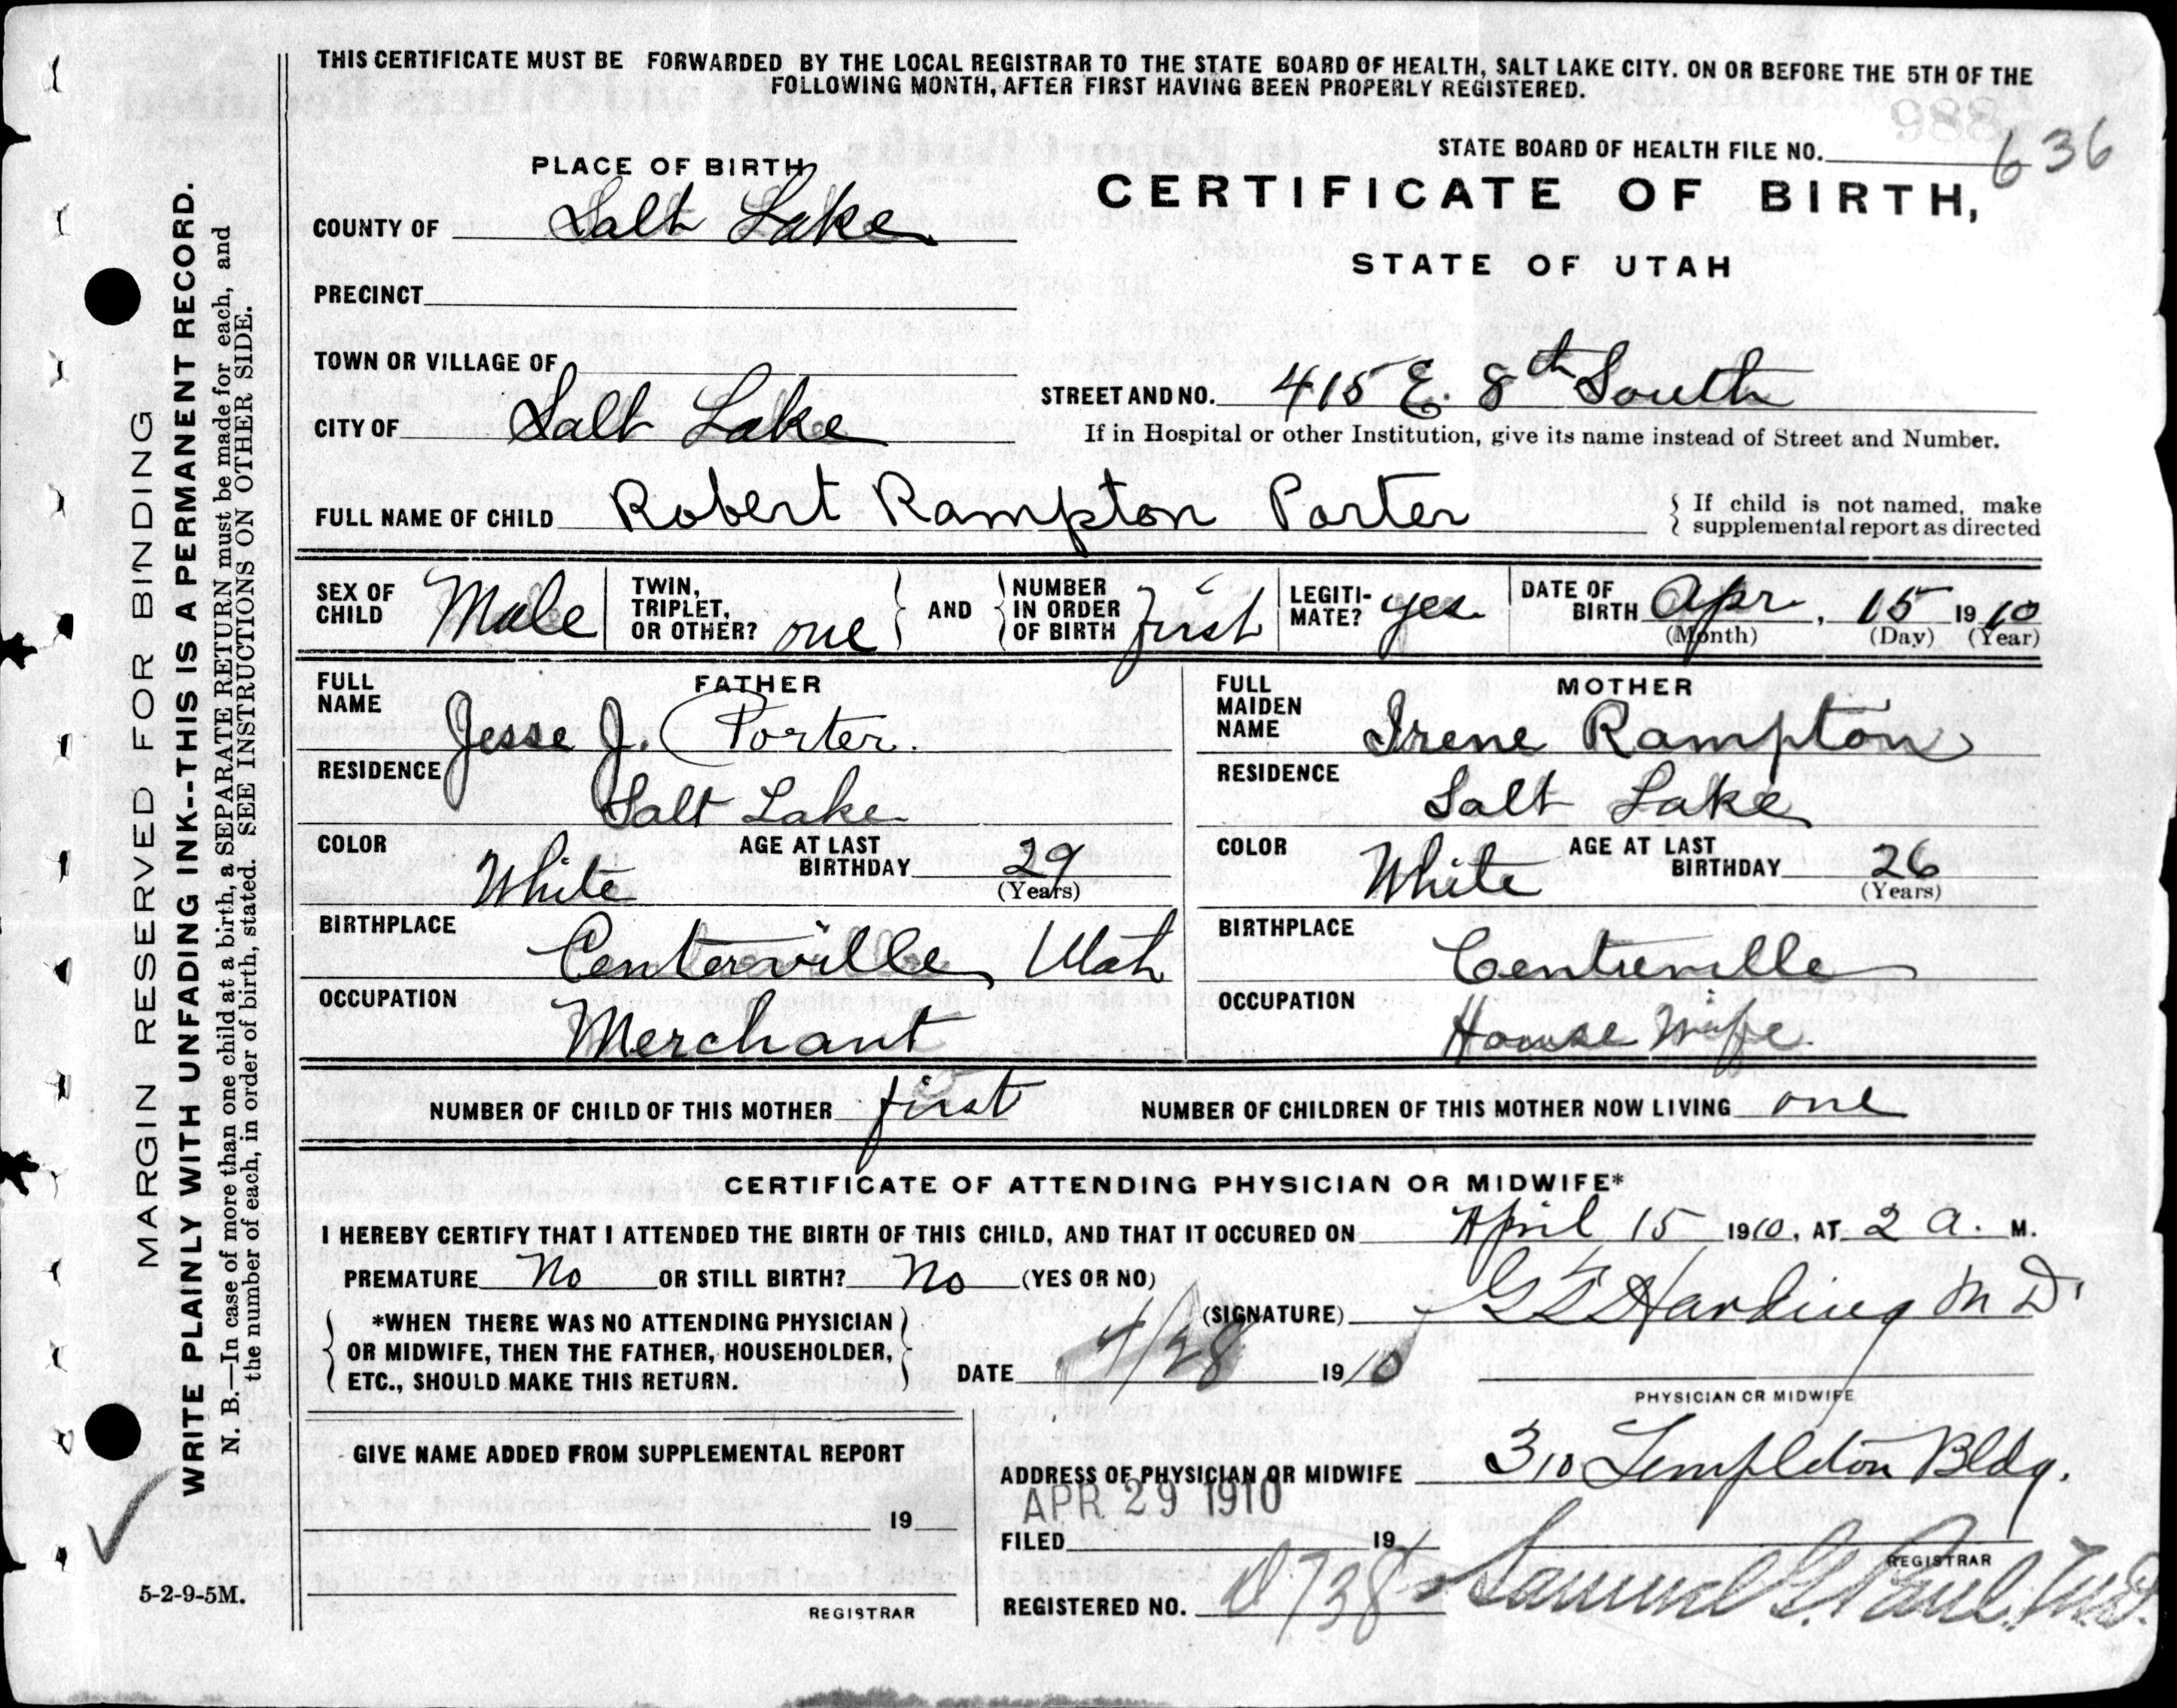 THIS CERTIFICATE MUST BE FORWARDED BY THE LOCAL REGISTRAR TO THE STATE BOARD OF HEALTH, SALT LAKE CITY. ON OR BEFORE THE 5TH OF THE
FOLLOWING MONTH, AFTER FIRST HAVING BEEN PROPERLY REGISTERED.
STATE BOARD OF HEALTH FILE NO. 636
PLACE OF BIRTH
CERTIFICATE OF BIRTH,
COUNTY OF Salt Lake
STATE OF UTAH
PRECINCT
TOWN OR VILLAGE OF
STREET AND NO. 415 E. 8th South
CITY OF Salt Lake
If in Hospital or other Institution, give its name instead of Street and Number.
FULL NAME OF CHILD Robert Rampton Porter
{ If child is not named, make
supplemental report as directed
SEX OF CHILD Male
TWIN, TRIPLET, OR OTHER? one } AND { NUMBER IN ORDER OF BIRTH first
LEGITI-MATE? yes
DATE OF BIRTH Apr. 15 1910
(Month) (Day) (Year)
FATHER
FULL NAME Jesse J. Porter.
RESIDENCE Salt Lake
COLOR White AGE AT LAST BIRTHDAY 29
(Years)
BIRTHPLACE Centerville, Utah
OCCUPATION Merchant
MOTHER
FULL MAIDEN NAME Irene Rampton
RESIDENCE Salt Lake
COLOR White AGE AT LAST BIRTHDAY 26
(Years)
BIRTHPLACE Centreville
OCCUPATION House Wife
NUMBER OF CHILD OF THIS MOTHER first NUMBER OF CHILDREN OF THIS MOTHER NOW LIVING one
CERTIFICATE OF ATTENDING PHYSICIAN OR MIDWIFE*
I HEREBY CERTIFY THAT I ATTENDED THE BIRTH OF THIS CHILD, AND THAT IT OCCURED ON April 15 1910, AT 2 a. M.
PREMATURE No OR STILL BIRTH? No (YES OR NO)
(SIGNATURE) Harding M D.
{ *WHEN THERE WAS NO ATTENDING PHYSICIAN
OR MIDWIFE, THEN THE FATHER, HOUSEHOLDER,
ETC., SHOULD MAKE THIS RETURN. }
DATE 4/28 1910
PHYSICIAN OR MIDWIFE
GIVE NAME ADDED FROM SUPPLEMENTAL REPORT
19
REGISTRAR
ADDRESS OF PHYSICIAN OR MIDWIFE 310 Templeton Bldg.
APR 29 1910
FILED 191
REGISTRAR
REGISTERED NO. 738 Samuel G. Paul, M.D.
MARGIN RESERVED FOR BINDING
WRITE PLAINLY WITH UNFADING INK--THIS IS A PERMANENT RECORD.
N. B.—In case of more than one child at a birth, a SEPARATE RETURN must be made for each, and
the number of each, in order of birth, stated. SEE INSTRUCTIONS ON OTHER SIDE.
5-2-9-5M.